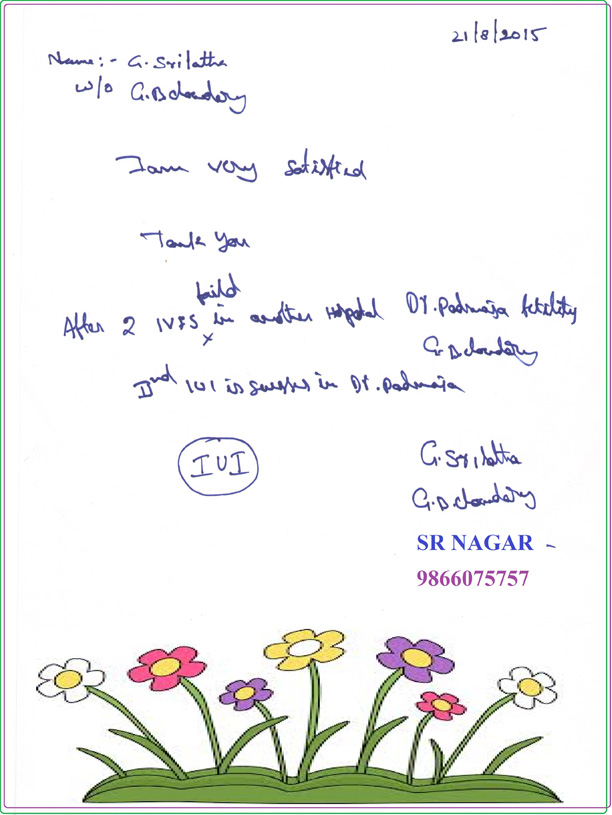 21/8/2015
Name:- G. Srilatha
W/o G.B.Choudary
I am very satisfied
Tank You
faild
After 2 IVFS in another Hospotal Dr. Padmaja fetility
x
G.B.Choudary
IInd IUI is sucesses in Dr. Padmaja
IUI
G. Srilatha
G.B.Choudary
SR NAGAR -
9866075757